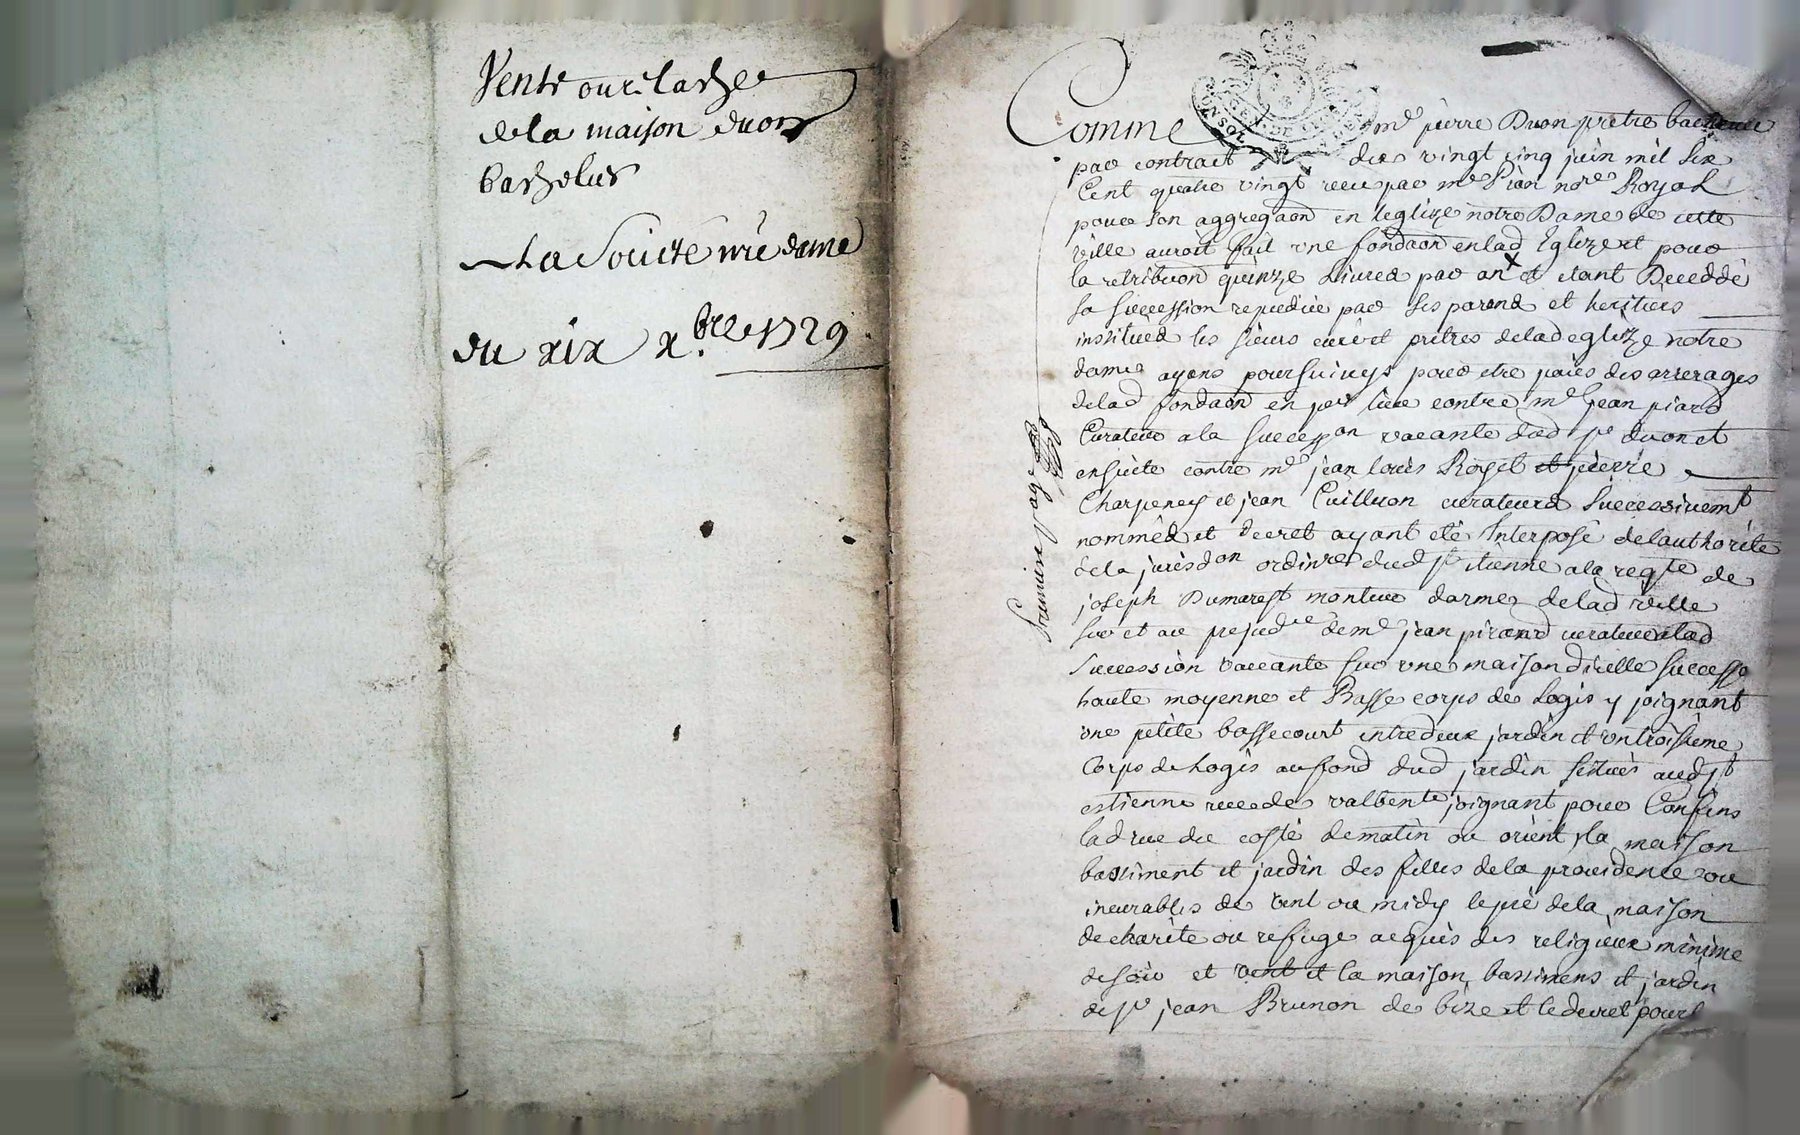 Vente ou relache
dela maison duon
bachelier
La Societé nre dame
du xix xbre 1729
Comme me pierre Duon pretre bachelier
par contract du vingt cinq juin mil six
Cent quatre vingt receu par me Pian nore Royal
pour son aggregaon en leglize notre Dame de cette
ville auroit fait une fondaon en lad Eglize et pour
la retribuon quinze Livres par an et etant Decedde
sa succession repudiée par ses parens et heritiers
institues les sieurs curé et pretres delad eglize notre
dame ayans poursuivys pour etre paiés des arrerages
delad fondaon en per lieu contre me jean piard
Curateur a la successon vacante dud sr duon et
ensuite contre me jean louis Royet et pierre
Charpeney et jean Cuilleron curateurs Successivemt
nommés et decret ayant eté Interposé delauthorité
dela jurisdon ordinre dud st etienne a la reqte de
joseph Dumarest monteur darmes delad ville
sur et au prejudce de me jean pirard curateur alad
Succession vaccante sur une maison dicelle success
haute moyenne et Basse corps de Logis y joignant
une petite bassecourt entredeux jardin et un troisieme
Corps de Logis au fond dud jardin situés aud st
estienne rue de valbente joignant pour Confins
lad rue du costé de matin ou orient la maison
bastiment et jardin des filles de la providence ou
incurables de vent ou midy le pré de la maison
de charite ou refuge acquis des religieux minime
de soir et vent et la maison, bastimens et jardin
de sr jean Brunon de bize et le decret pours
Premiere page